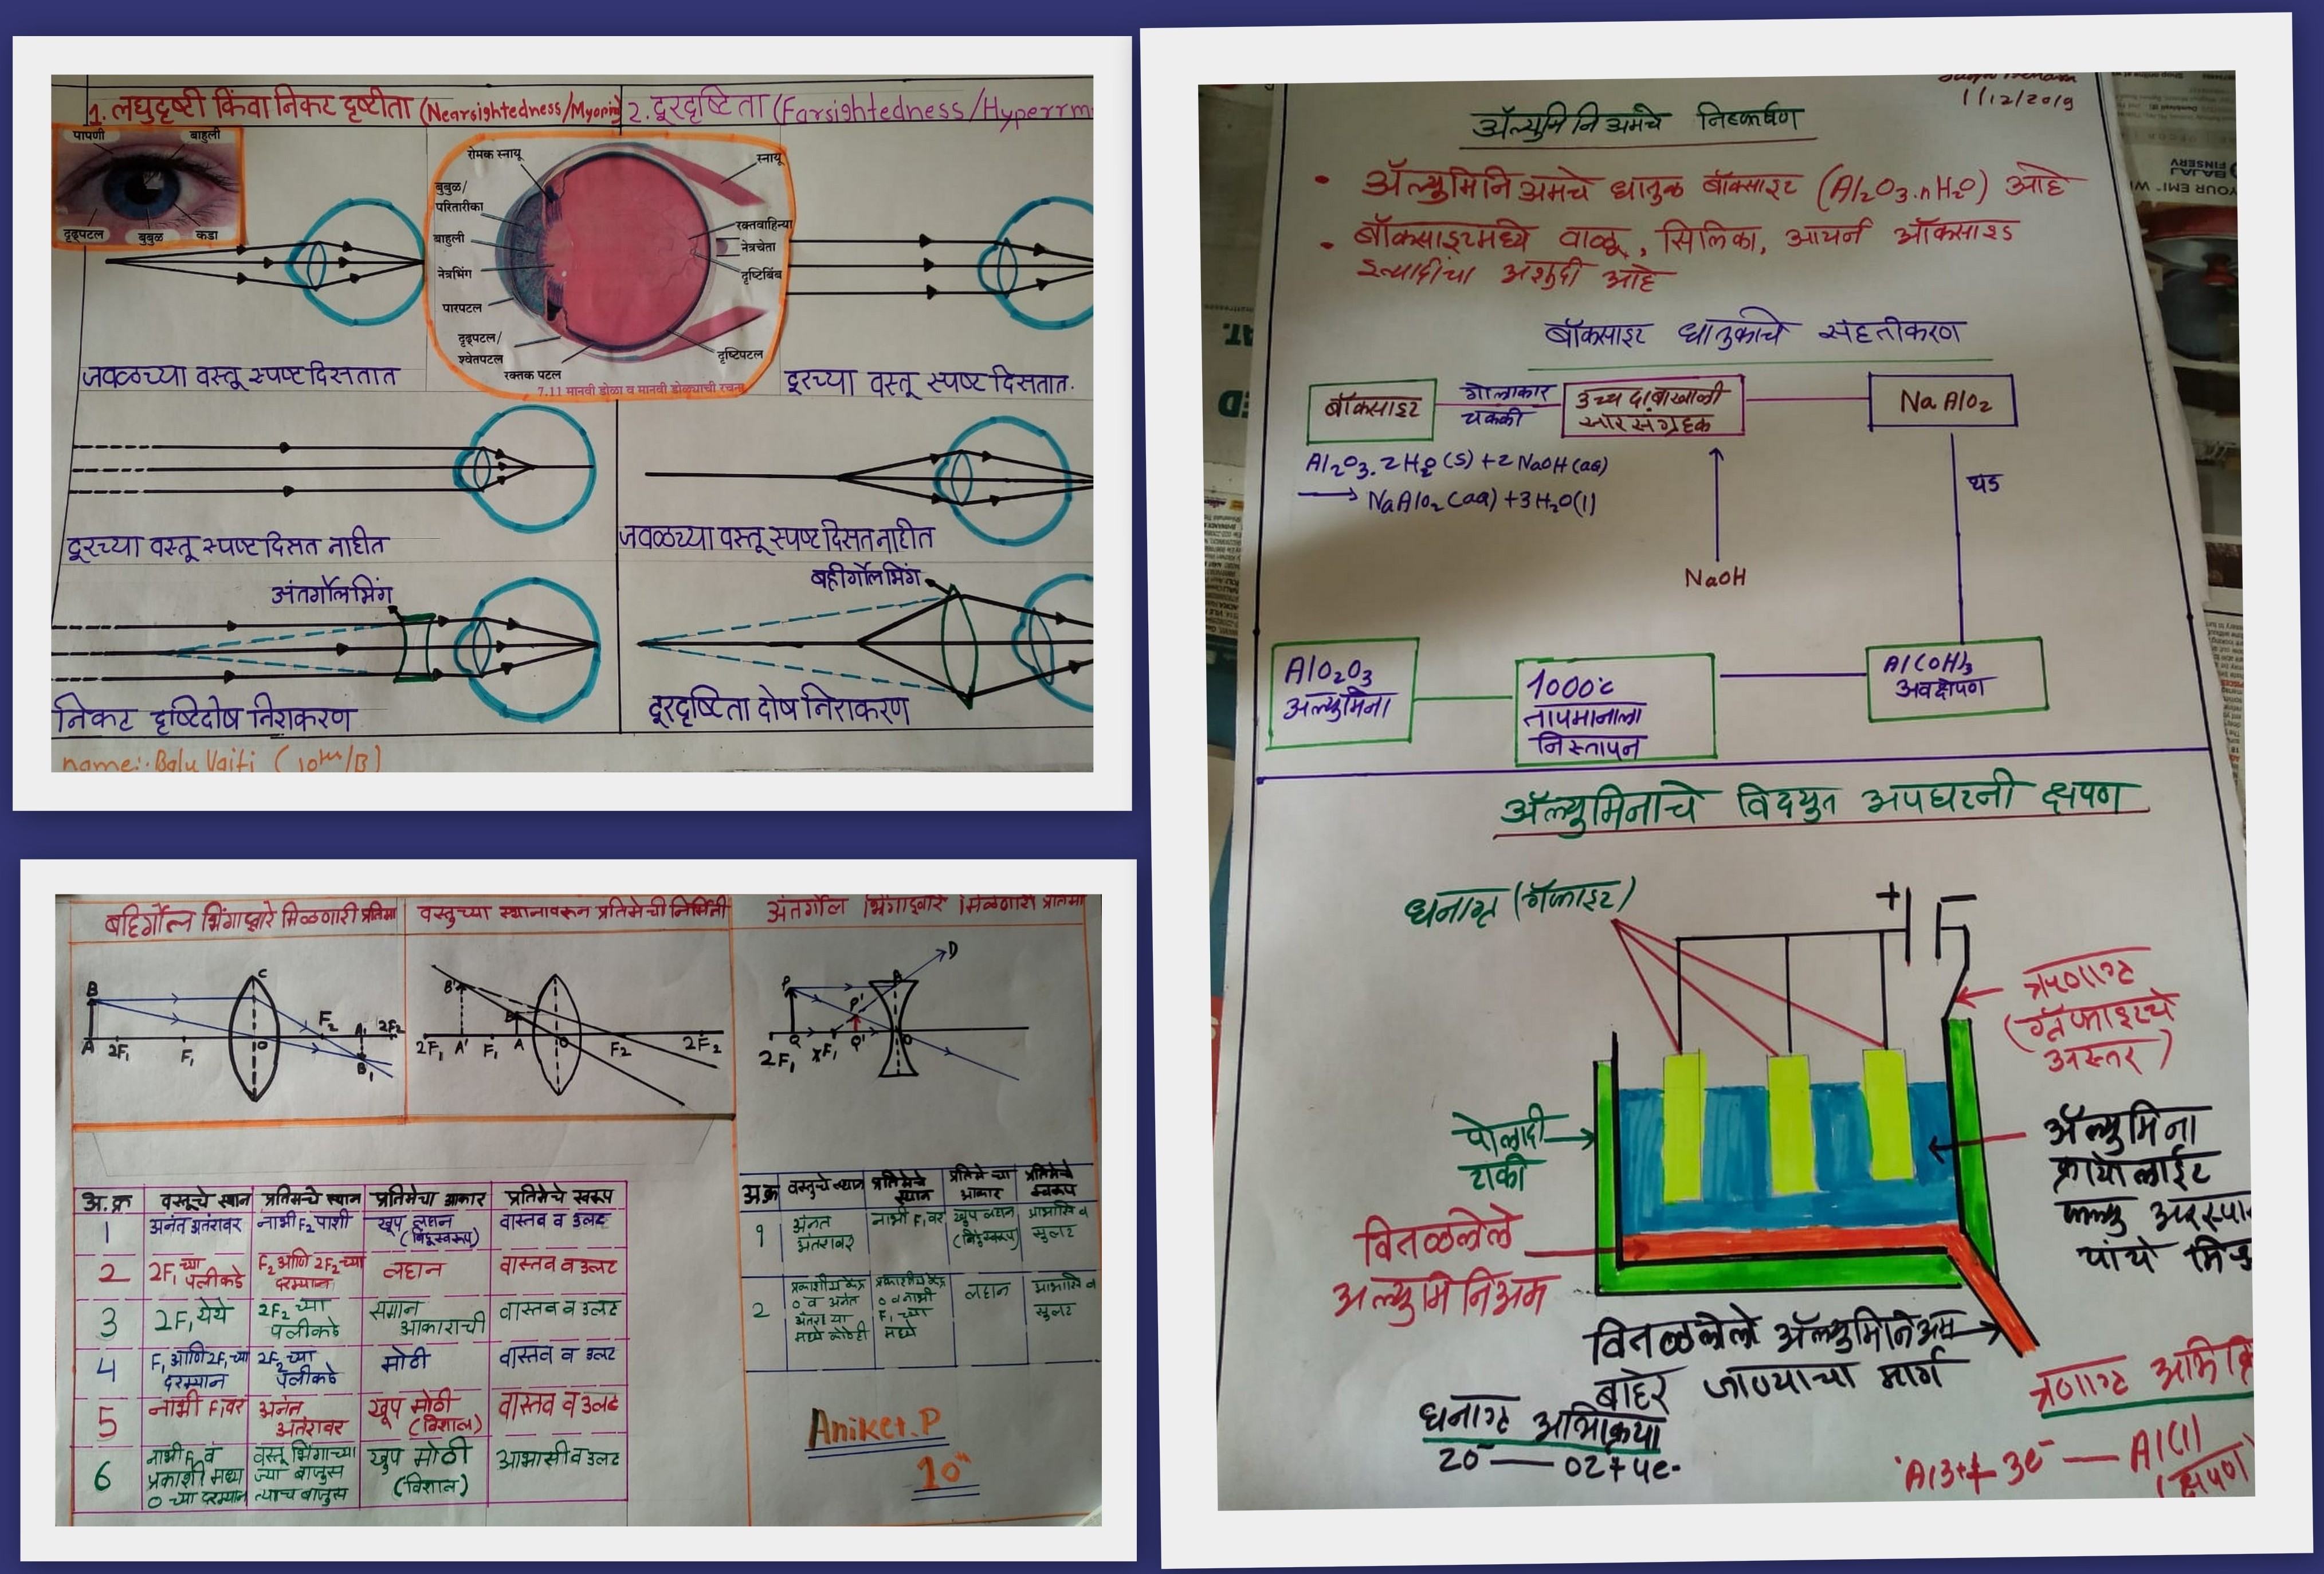 1. लघुदृष्टी किंवा निकट दृष्टीता (Nearsightedness/Myopia)
2. दूरदृष्टिता (Farsightedness/Hyperrm
पापणी
बाहुली
दृढ्पटल
बुबुळ
कडा
रोमक स्नायू
स्नायू
बुबुळ/
परितारीका
बाहुली
नेत्रभिंग
पारपटल
दृढ्पटल/
श्वेतपटल
रक्तक पटल
रक्तवाहिन्या
नेत्रचेता
दृष्टिबिंब
दृष्टिपटल
7.11 मानवी डोळा व मानवी डोळ्याची रचना
जवळच्या वस्तू स्पष्ट दिसतात
दूरच्या वस्तू स्पष्ट दिसतात.
दूरच्या वस्तू स्पष्ट दिसत नाहीत
जवळच्या वस्तू स्पष्ट दिसत नाहीत
अंतर्गोल भिंग
बहीर्गोल भिंग
निकट दृष्टिदोष निराकरण
दूरदृष्टिता दोष निराकरण
name:- Balu Vaiti (10th/B)
बहिर्गोल भिंगाद्वारे मिळणारी प्रतिमा
वस्तुच्या स्थानावरून प्रतिमेची निर्मिती
अंतर्गोल भिंगाद्वारे मिळणारी प्रतिमा
B C F2 A1 2F2
A 2F1 F1 O B1
B' B
2F1 A' F1 A O F2 2F2
P A D P'
2F1 Q F1 Q' O
अ.क्र वस्तूचे स्थान प्रतिमेचे स्थान प्रतिमेचा आकार प्रतिमेचे स्वरूप
1 अनंत अंतरावर नाभी F2 पाशी खूप लहान (बिंदूस्वरूप) वास्तव व उलट
2 2F1 च्या पलीकडे F2 आणि 2F2 च्या दरम्यान लहान वास्तव व उलट
3 2F1 येथे 2F2 च्या पलीकडे समान आकाराची वास्तव व उलट
4 F1 आणि 2F1 च्या दरम्यान 2F2 च्या पलीकडे मोठी वास्तव व उलट
5 नाभी F1 वर अनंत अंतरावर खूप मोठी (विशाल) वास्तव व उलट
6 नाभी F1 व प्रकाशी मध्य O च्या दरम्यान वस्तू भिंगाच्या ज्या बाजुस त्याच बाजुस खुप मोठी (विशाल) आभासी व उलट
अ.क्र वस्तुचे स्थान प्रतिमेचे स्थान प्रतिमेच्या आकार प्रतिमेचे स्वरूप
१ अनंत अंतरावर नाभी F1 वर खुप लहान (बिंदुस्वरूप) आभासि व सुलट
2 प्रकाशीय केंद्र O व अनंत अंतराच्या मध्ये कोठेही प्रकाशीय केंद्र O व नाभी F1 च्या मध्ये लहान आभासि व सुलट
Aniket.P
10th
1/12/2019
अ‍ॅल्युमिनिअमचे निष्कर्षण
• अ‍ॅल्युमिनिअमचे धातुक बॉक्साइट (Al2O3.nH2O) आहे
• बॉक्साइटमध्ये वाळू, सिलिका, आयर्न ऑक्साइड
इत्यादींचा अशुद्धी आहे
बॉक्साइट धातुकाचे संहतीकरण
बॉक्साइट
गोलाकार
चक्की
उच्च दाबाखाली
NaAlO2
Al2O3.2H2O(s)+2NaOH(aq)
→ NaAlO2(aq)+3H2O(l)
NaOH
थंड
AlO2O3
अ‍ॅल्युमिना
1000°c
तापमानाला
निस्तापन
Al(OH)3
अवक्षेपण
अ‍ॅल्युमिनाचे विद्युत अपघटनी क्षपण
धनाग्र (ग्रॅफाइट)
+
ऋणाग्र
(ग्रॅफाइटचे
अस्तर)
पोलादी
टाकी
अ‍ॅल्युमिना
क्रायोलाईट
यांचे
वितळलेले
अ‍ॅल्युमिनिअम
वितळलेले अ‍ॅल्युमिनिअम
बाहेर जाण्याचा मार्ग
धनाग्र अभिक्रिया
20⁻ — O2+4e-
ऋणाग्र अभिक्रि
Al3++3e⁻ — Al(l)
(क्षपण)